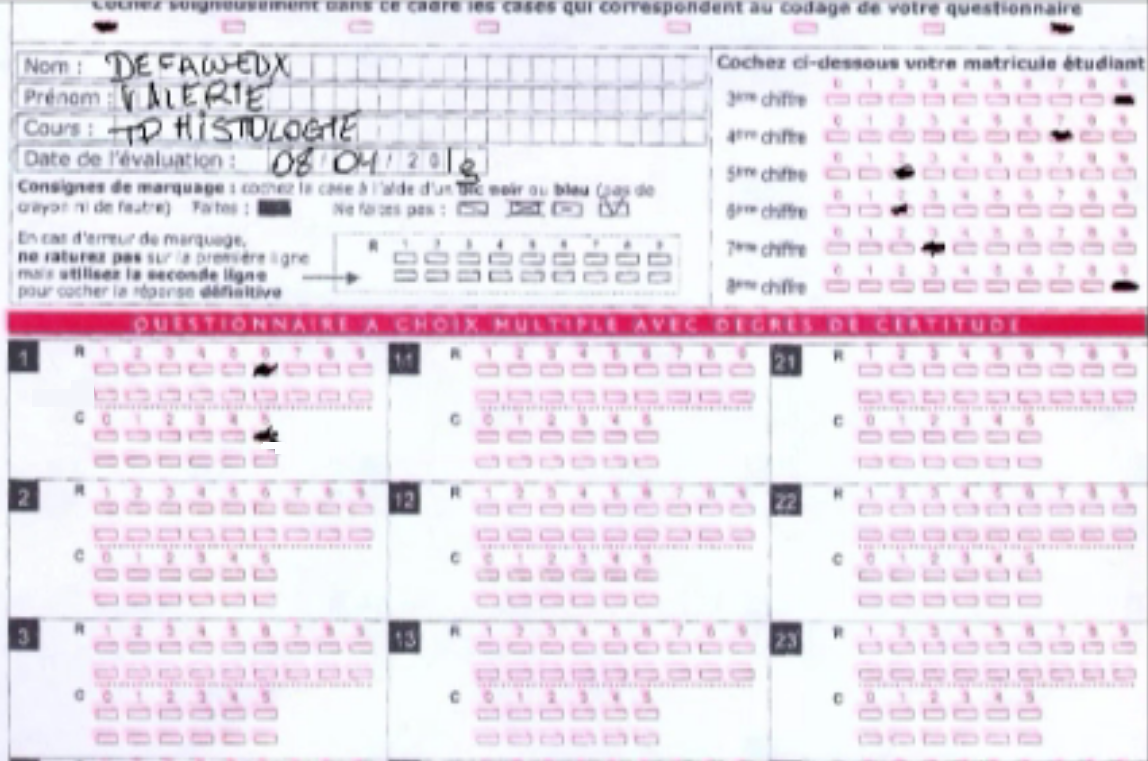 Cochez soigneusement dans ce cadre les cases qui correspondent au codage de votre questionnaire
Nom : DEFAWEUX
Prénom : VALERIE
Cours : TD HISTOLOGIE
Date de l'évaluation : 08/04/2018
Consignes de marquage : cochez la case à l'aide d'un bic noir ou bleu (pas de
crayon ni de feutre) Faites : Ne faites pas :
En cas d'erreur de marquage,
ne raturez pas sur la première ligne
mais utilisez la seconde ligne
pour cocher la réponse définitive
R 1 2 3 4 5 6 7 8 9
Cochez ci-dessous votre matricule étudiant
0 1 2 3 4 5 6 7 8 9
3ème chiffre
0 1 2 3 4 5 6 7 8 9
4ème chiffre
0 1 2 3 4 5 6 7 8 9
5ème chiffre
0 1 2 3 4 5 6 7 8 9
6ème chiffre
0 1 2 3 4 5 6 7 8 9
7ème chiffre
0 1 2 3 4 5 6 7 8 9
8ème chiffre
QUESTIONNAIRE A CHOIX MULTIPLE AVEC DEGRES DE CERTITUDE
1 R 1 2 3 4 5 6 7 8 9
C 0 1 2 3 4 5
11 R 1 2 3 4 5 6 7 8 9
C 0 1 2 3 4 5
21 R 1 2 3 4 5 6 7 8 9
C 0 1 2 3 4 5
2 R 1 2 3 4 5 6 7 8 9
C 0 1 2 3 4 5
12 R 1 2 3 4 5 6 7 8 9
C 0 1 2 3 4 5
22 R 1 2 3 4 5 6 7 8 9
C 0 1 2 3 4 5
3 R 1 2 3 4 5 6 7 8 9
C 0 1 2 3 4 5
13 R 1 2 3 4 5 6 7 8 9
C 0 1 2 3 4 5
23 R 1 2 3 4 5 6 7 8 9
C 0 1 2 3 4 5